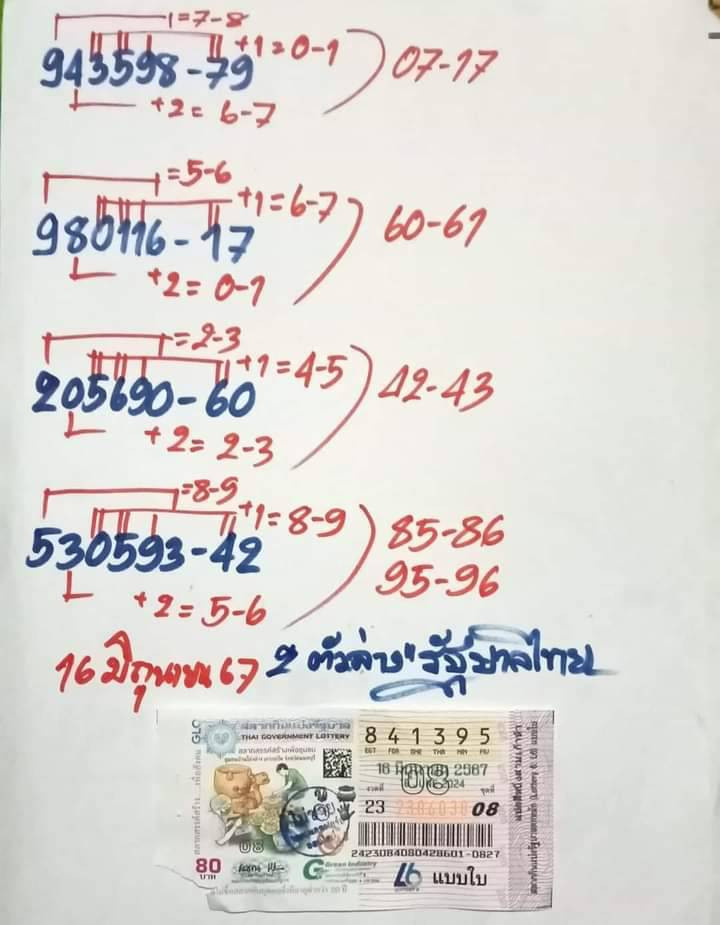 1=7-8
943598-79 +1=0-1 07-17
+2=6-7
=5-6
980116-17 +1=6-7 60-61
+2=0-1
=2-3
205690-60 +1=4-5 42-43
+2=2-3
=8-9
530593-42 +1=8-9 85-86
95-96
+2=5-6
16 มิถุนายน 67 2 ตัวล่าง" รัฐบาลไทย
สลากกินแบ่งรัฐบาล
THAI GOVERNMENT LOTTERY
841395
EGT FOR ONE THR NIN FIV
16 มิถุนายน 2567
งวดที่ ชุดที่
23 08
2423084080428601-0827
08
80
บาท
Green Industry
L6 แบบใบ